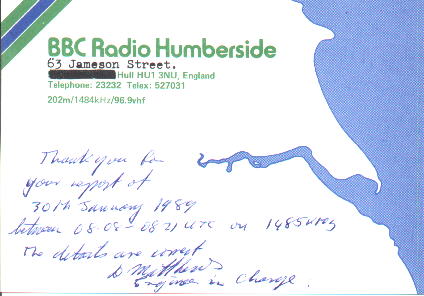 BBC Radio Humberside
63 Jameson Street.
Hull HU1 3NU, England
Telephone: 23232 Telex: 527031
202m/1484kHz/96.9vhf
Thank you for
your report of
30th January 1989
between 08.08 - 0821 UTC on 1485kHz
The details are correct
D. Matthews
Engineer in Charge.